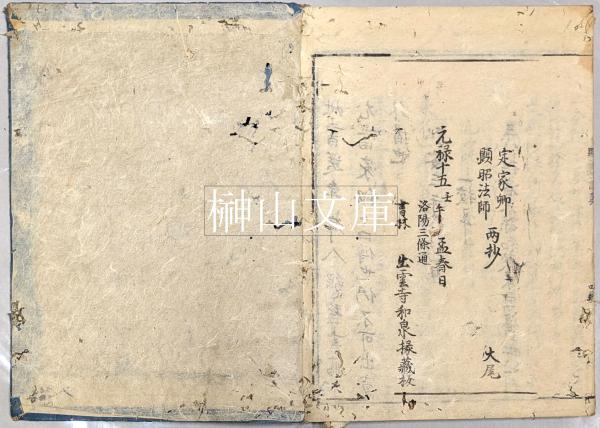 定家卿
顕昭法師 両抄
大尾
元禄十五壬午 孟春日
洛陽三條通
書林 出雲寺和泉掾蔵板
榊山文庫